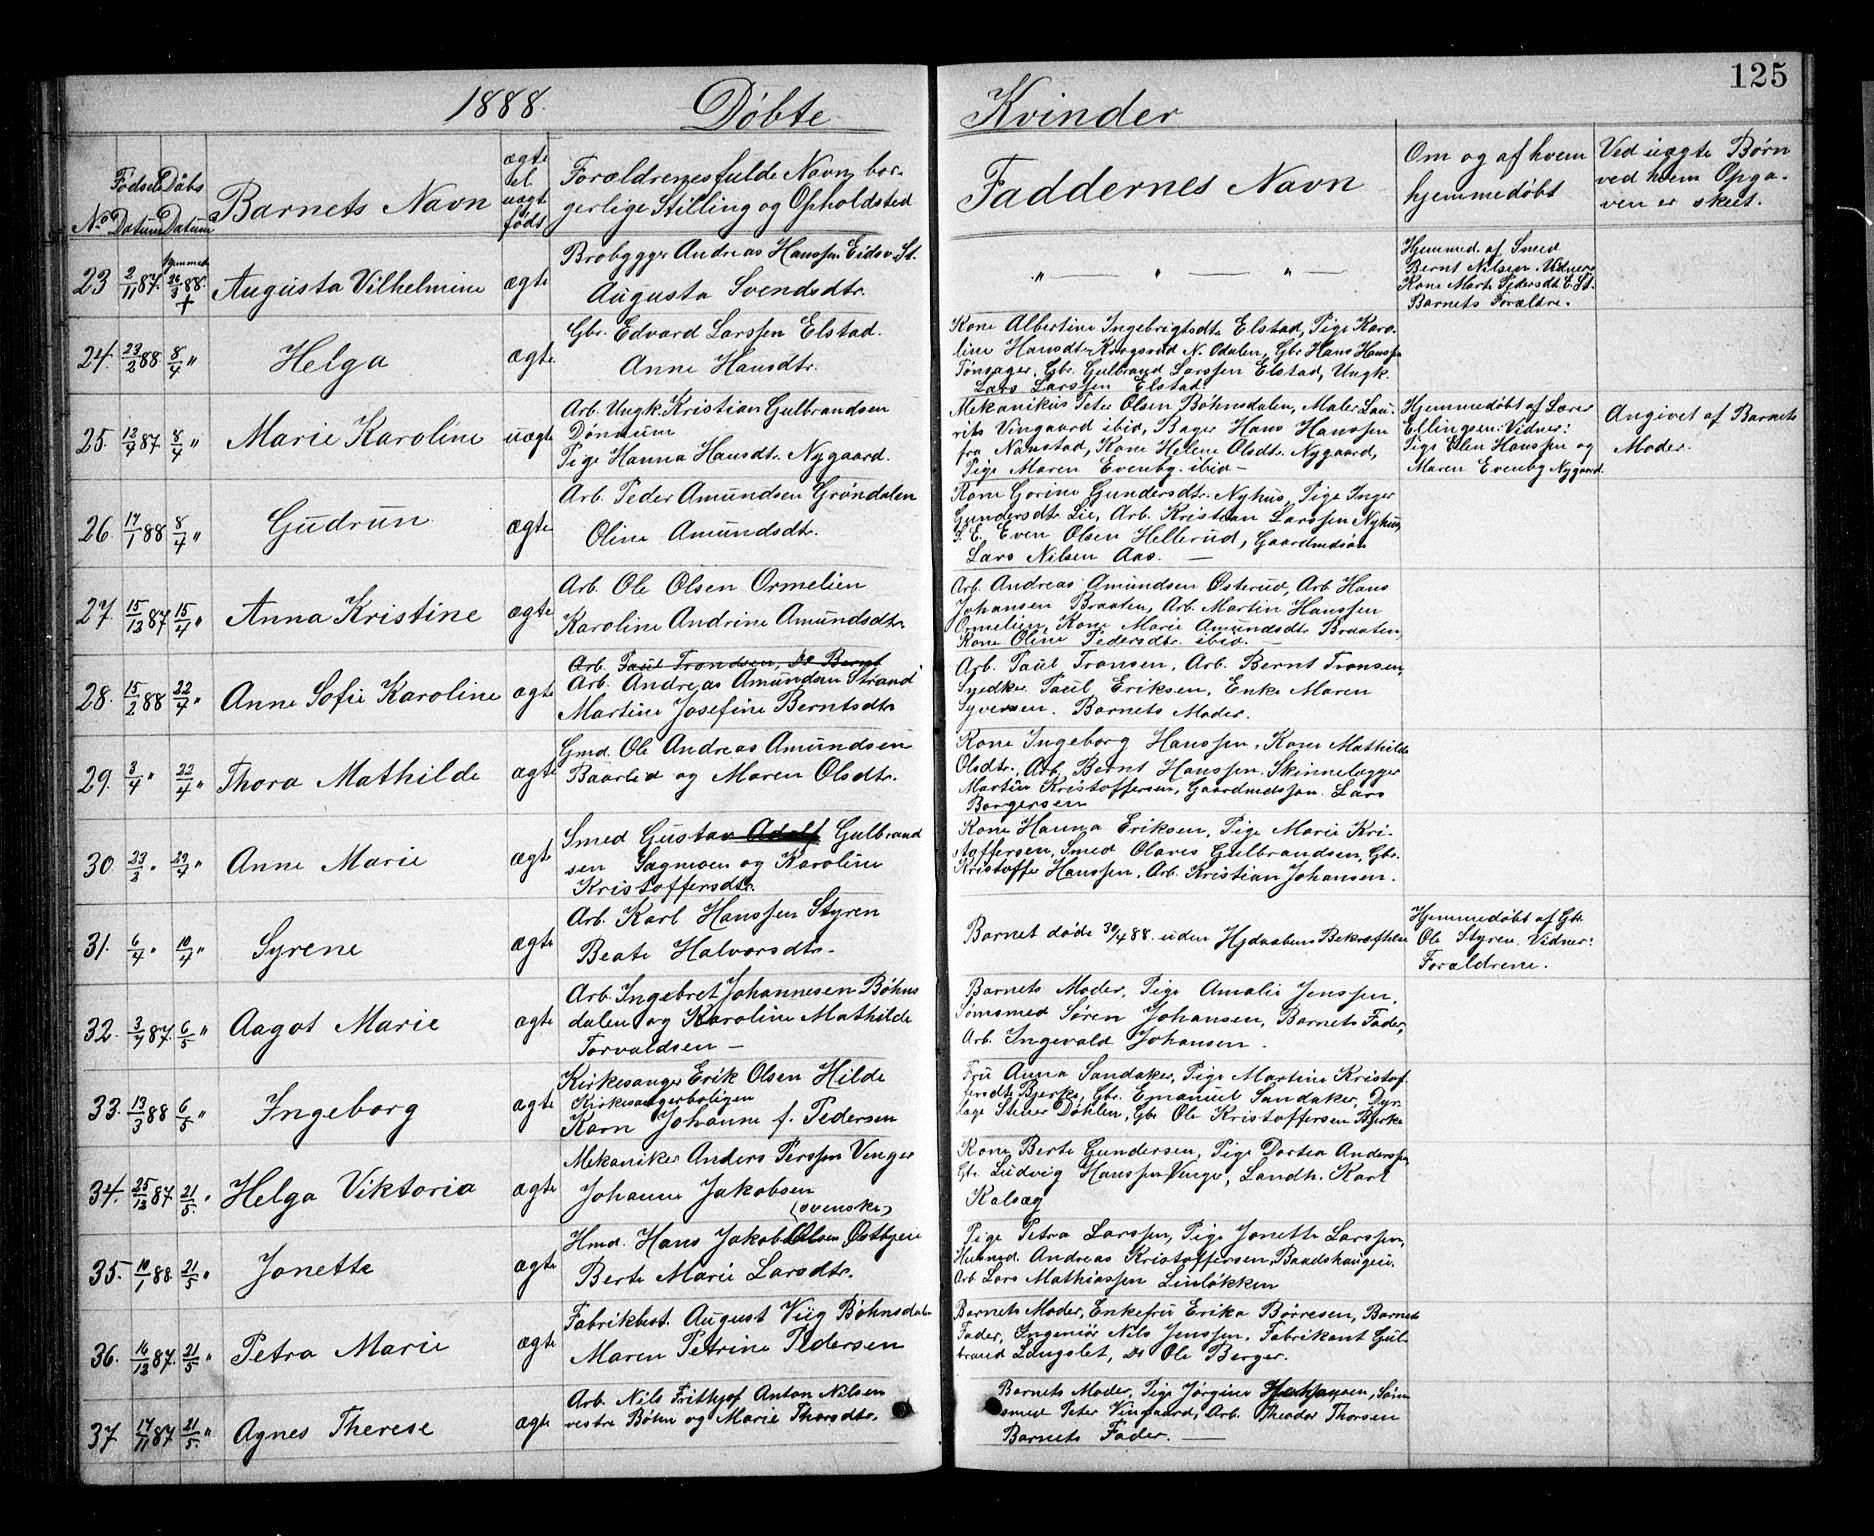 125
1888. Döbte Kvinder
No
Fødsels Datum
Döbs Datum
Barnets Navn
ægte el uægt født
Forældrenes fulde Navn, bor-
gerlige Stilling og Opholdsted
Faddernes Navn
Om og af hvem
hjemmedøbt
Ved uægte Børn
ved hvem Opga-
ven er skeet.
23 2/11 87. hjemmed. 26/3 88. + Augusta Vilhelmine ægte
Brobygger Andreas Hanssen Eidsv. St.
Augusta Svendsdtr.
" — " — " —
Hjemmed. af Smed
Bernt Nilsen. Vidner:
Kone Marte Pedersdt. E. St.
Barnets Forældre.
24. 23/2 88 8/4 " Helga ægte
Gbr. Edvard Larssen Elstad.
Anne Hansdtr.
Kone Albertine Ingebrigtsdtr Elstad, Pige Karo-
line Hansdtr Krogsrud N. Odalen, Gbr Hans Hanssen
Tønsager, Gbr. Gulbrand Larssen Elstad, Ungk.
Lars Larssen Elstad.
25. 12/4 87 8/4 " Marie Karoline uægte
Arb. Ungk. Kristian Gulbrandsen
Dønnum
Pige Hanna Hansdtr. Nygaard.
Mekanikus Peter Olsen Bøhnsdalen, Maler Lau-
rits Vingaard ibid, Bager Hans Hanssen
fra Nanstad, Kone Helene Olsdtr. Nygaard,
Pige Maren Evenbg. ibid —
Hjemmedøbt af Lærer
Ellingsen. Vidner:
Pige Elen Hanssen og
Maren Evenbg Nygaard.
Angivet af Barnets
Moder.
26. 17/1 88 8/4 " Gudrun ægte
Arb. Peder Amundsen Gröndalen
Oline Amundsdtr.
Kone Gorine Gundersdtr. Nyhus, Pige Inger
Gundersdtr Lie, Arb. Kristian Larssen Nyhus,
S. E. Even Olsen Hellerud, Gaardmdsøn
Lars Nilsen Aas. —
27. 15/12 87 15/4 " Anna Kristine ægte
Arb. Ole Olsen Ormelien
Karoline Andrine Amundsdtr.
Arb. Andreas Amundsen Østerud, Arb Hans
Johansen Braaten, Arb. Martin Hanssen
Ormelien, Kone Marie Amundsdtr Braaten,
Kone Oline Pedersdtr. ibid. —
28. 15/2 88 22/4 " Anne Sofie Karoline ægte
Arb. Paul Trondsen, Do Bernt
Arb. Andreas Amundsen Strand
Martine Josefine Berntsdtr
Arb. Paul Tronsen, Arb. Bernt Tronsen,
Snedker Paul Eriksen, Enke Maren
Syversen. Barnets Moder.
29. 3/4 " 22/4 " Thora Mathilde ægte
Gmd. Ole Andreas Amundsen
Baarlid og Maren Olsdtr.
Kone Ingeborg Hanssen, Kone Mathilde
Olsdtr., Arb. Bernt Hanssen, Skinnelægger
Martin Kristoffersen, Gaardmdssøn Lars
Borgersen
30. 23/3 " 29/4 " Anne Marie ægte
Smed Gustav Adolf Gulbrand
sen Sagmoen og Karoline
Kristoffersdtr.
Kone Hanna Eriksen, Pige Marie Kri-
stoffersen, Smed Olaves Gulbrandsen, Gbr.
Kristoffer Hanssen, Arb. Kristian Johansen.
31. 6/4 " 10/4 " Syrene ægte
Arb. Karl Hanssen Styren
Beate Halvorsdtr.
Barnet døde 30/4 88 uden Hjdaabens Bekræftelse
Hjemmedøbt af Gbr
Ole Styren. Vidner:
Forældrene.
32. 3/7 87. 6/5 " Aagot Marie ægte
Arb. Ingebret Johannesen Bøhns
dalen og Karoline Mathilde
Torvaldsen —
Barnets Moder, Pige Amalie Jenssen,
Sømsmed Søren Johansen, Barnets Fader,
Arb. Ingevald Johansen.
33. 13/3 88 6/5 " Ingeborg ægte
Kirkesanger Erik Olsen Hilde
Kirkesangerboligen
Karn Johanne f. Pedersen
Fru Anna Sandaker, Pige Martine Kristof
fersdtr Bjerke, Gbr. Emanuel Sandaker, Dyr-
læge Stener Døhlen, Gbr. Ole Kristoffersen Bjerke
34. 25/12 87 21/5. " Helga Viktoria ægte
Mekaniker Anders Perssen Venger
Johanne Jakobsen
(svenske)
Kone Berte Gundersen, Pige Dortea Anderssen
Gbr. Ludvig Hanssen Venger, Landh. Karl
Kalsæg
35. 10/1 88. 21/5 " Jonette ægte
Hmd. Hans Jakob Olsen Østbyeie
Berte Marie Larsdtr.
Pige Petra Larssen, Pige Jonette Larssen,
Husmd. Andreas Kristoffersen, Baadshaugeie.
Arb Lars Mathiassen Linløkken
36. 16/12 87. 21/5 " Petra Marie ægte
Fabrikbest. August Viig Bøhnsdalen
Maren Petrine Pedersen
Barnets Moder, Enkefru Erika Børresen, Barnets
Fader, Ingeniør Nils Jenssen, Fabrikant Gul-
brand Langslet, Do Ole Berger.
37 17/11 87. 21/5. " Agnes Therese ægte
Arb. Nils Frithjof Anton Nilsen
vestre Bøhn og Marie Thorsdtr.
Barnets Moder, Pige Jørgine, Søm
smed Peter Vingaard, Arb. Theodor Thorsen
Barnets Fader. —